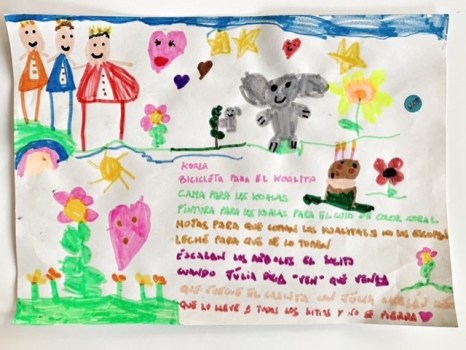 KOALA
BICICLETA PARA EL KOALITA
CAMA PARA LOS KOALAS
PINTURA PARA LOS KOALAS PARA EL DE COLOR CORAL
HOJAS PARA QUE COMAN LOS KOALITAS Y NO LAS ESCUPAN
LECHE PARA QUE SE LO TOMEN
ESCALAN LOS ARBOLES EL SOLITO
CUANDO JÚLIA DIGA "VEN" QUE VENGA
QUE JUEGUE EL CON JÚLIA
QUE LO LLEVE A TODOS LOS SITIOS Y NO SE PIERDA